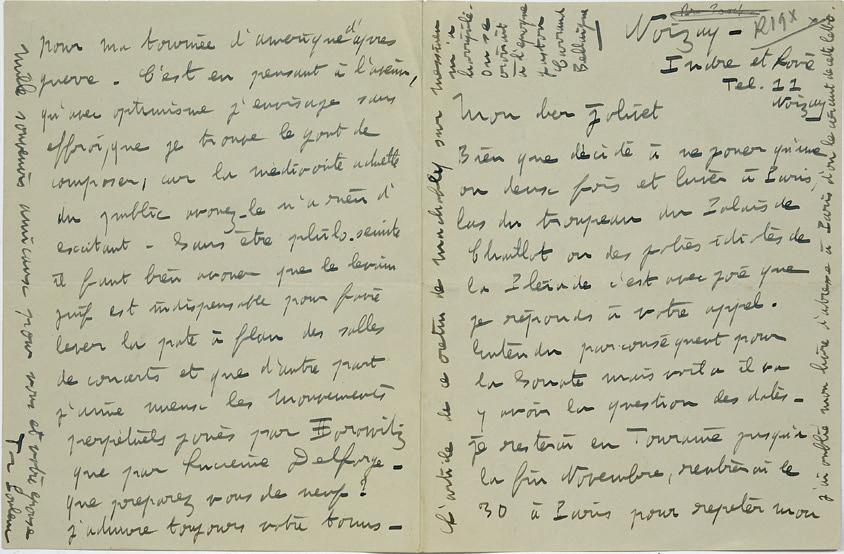 Noizay -
Indre et Loire
Tel. 11
Noizay
Mon cher Jolivet
Bien que décidé à ne jouer qu'une
ou deux fois cet hiver à Paris,
las du troupeau du Palais de
Chaillot ou des folies idiotes de
la Pléiade c'est avec joie que
je réponds à votre appel.
Entendu par conséquent pour
la Sonate mais voilà il va
y avoir la question des dates -
je resterai en Touraine jusqu'à
la fin Novembre, rentrerai le
30 à Paris pour repeter mon
L'article de ce crétin de Machabey sur Messiaen
m'a
horrifié.
On se
croirait
à l'époque
Gaston
Carraud
Bellaigue
j'ai oublié mon livre d'adresse à Paris d'où le
pour ma tournée d'amerique d'après
guerre. C'est en pensant à l'avenir,
qu'avec optimisme j'envisage sans
effroi, que je trouve le gout de
composer, car la médiocrité actuelle
du public avouez-le n'a rien d'
excitant - Sans être philo-sémite
il faut bien avouer que le levain
juif est indispensable pour faire
lever la pate à flan des salles
de concerts et que d'autre part
j'aime mieux les Mouvements
perpétuels joués par Horowitz
que par Lucienne Delforge -
que preparez vous de neuf?
j'admire toujours votre tonus -
Mille souvenirs amicaux pour vous et votre épouse
Fr Poulenc